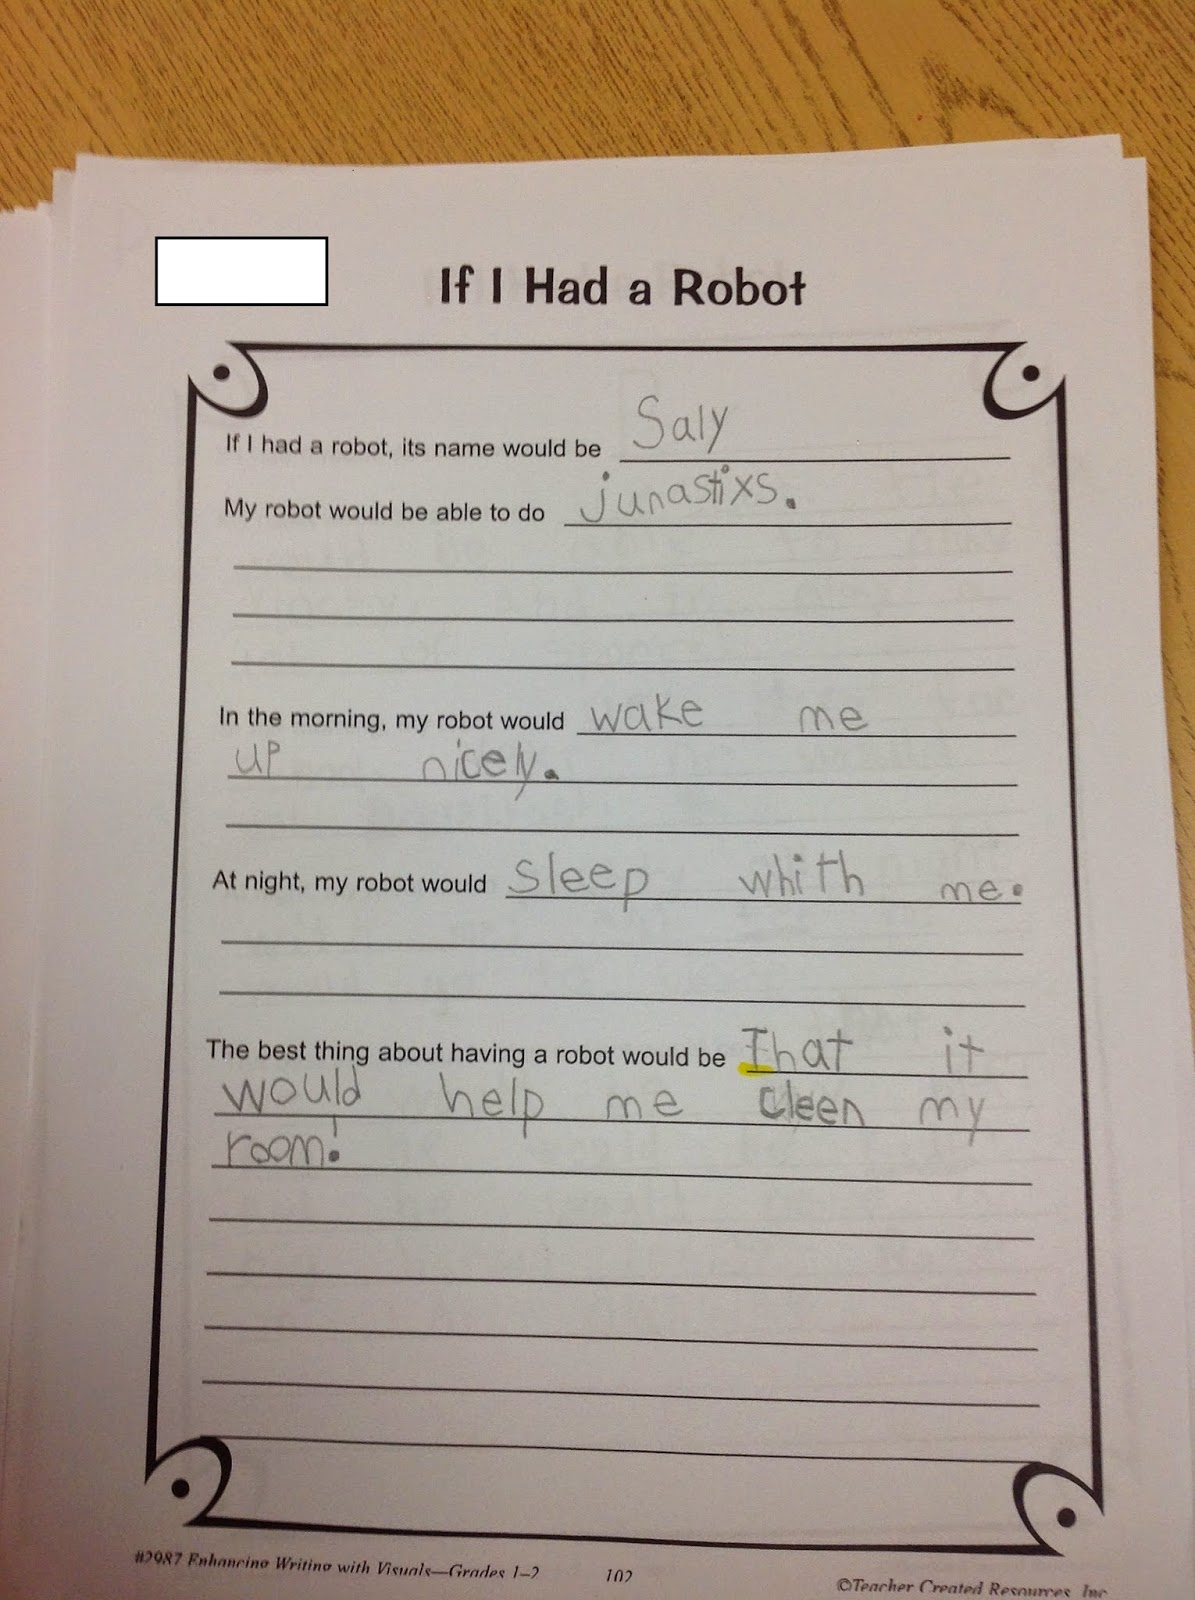 If I Had a Robot
If I had a robot, its name would be Saly
My robot would be able to do junastixs.
In the morning, my robot would wake me
up nicely.
At night, my robot would sleep whith me.
The best thing about having a robot would be That it
would help me cleen my
room!
#2987 Enhancing Writing with Visuals—Grades 1–2 102 ©Teacher Created Resources, Inc.